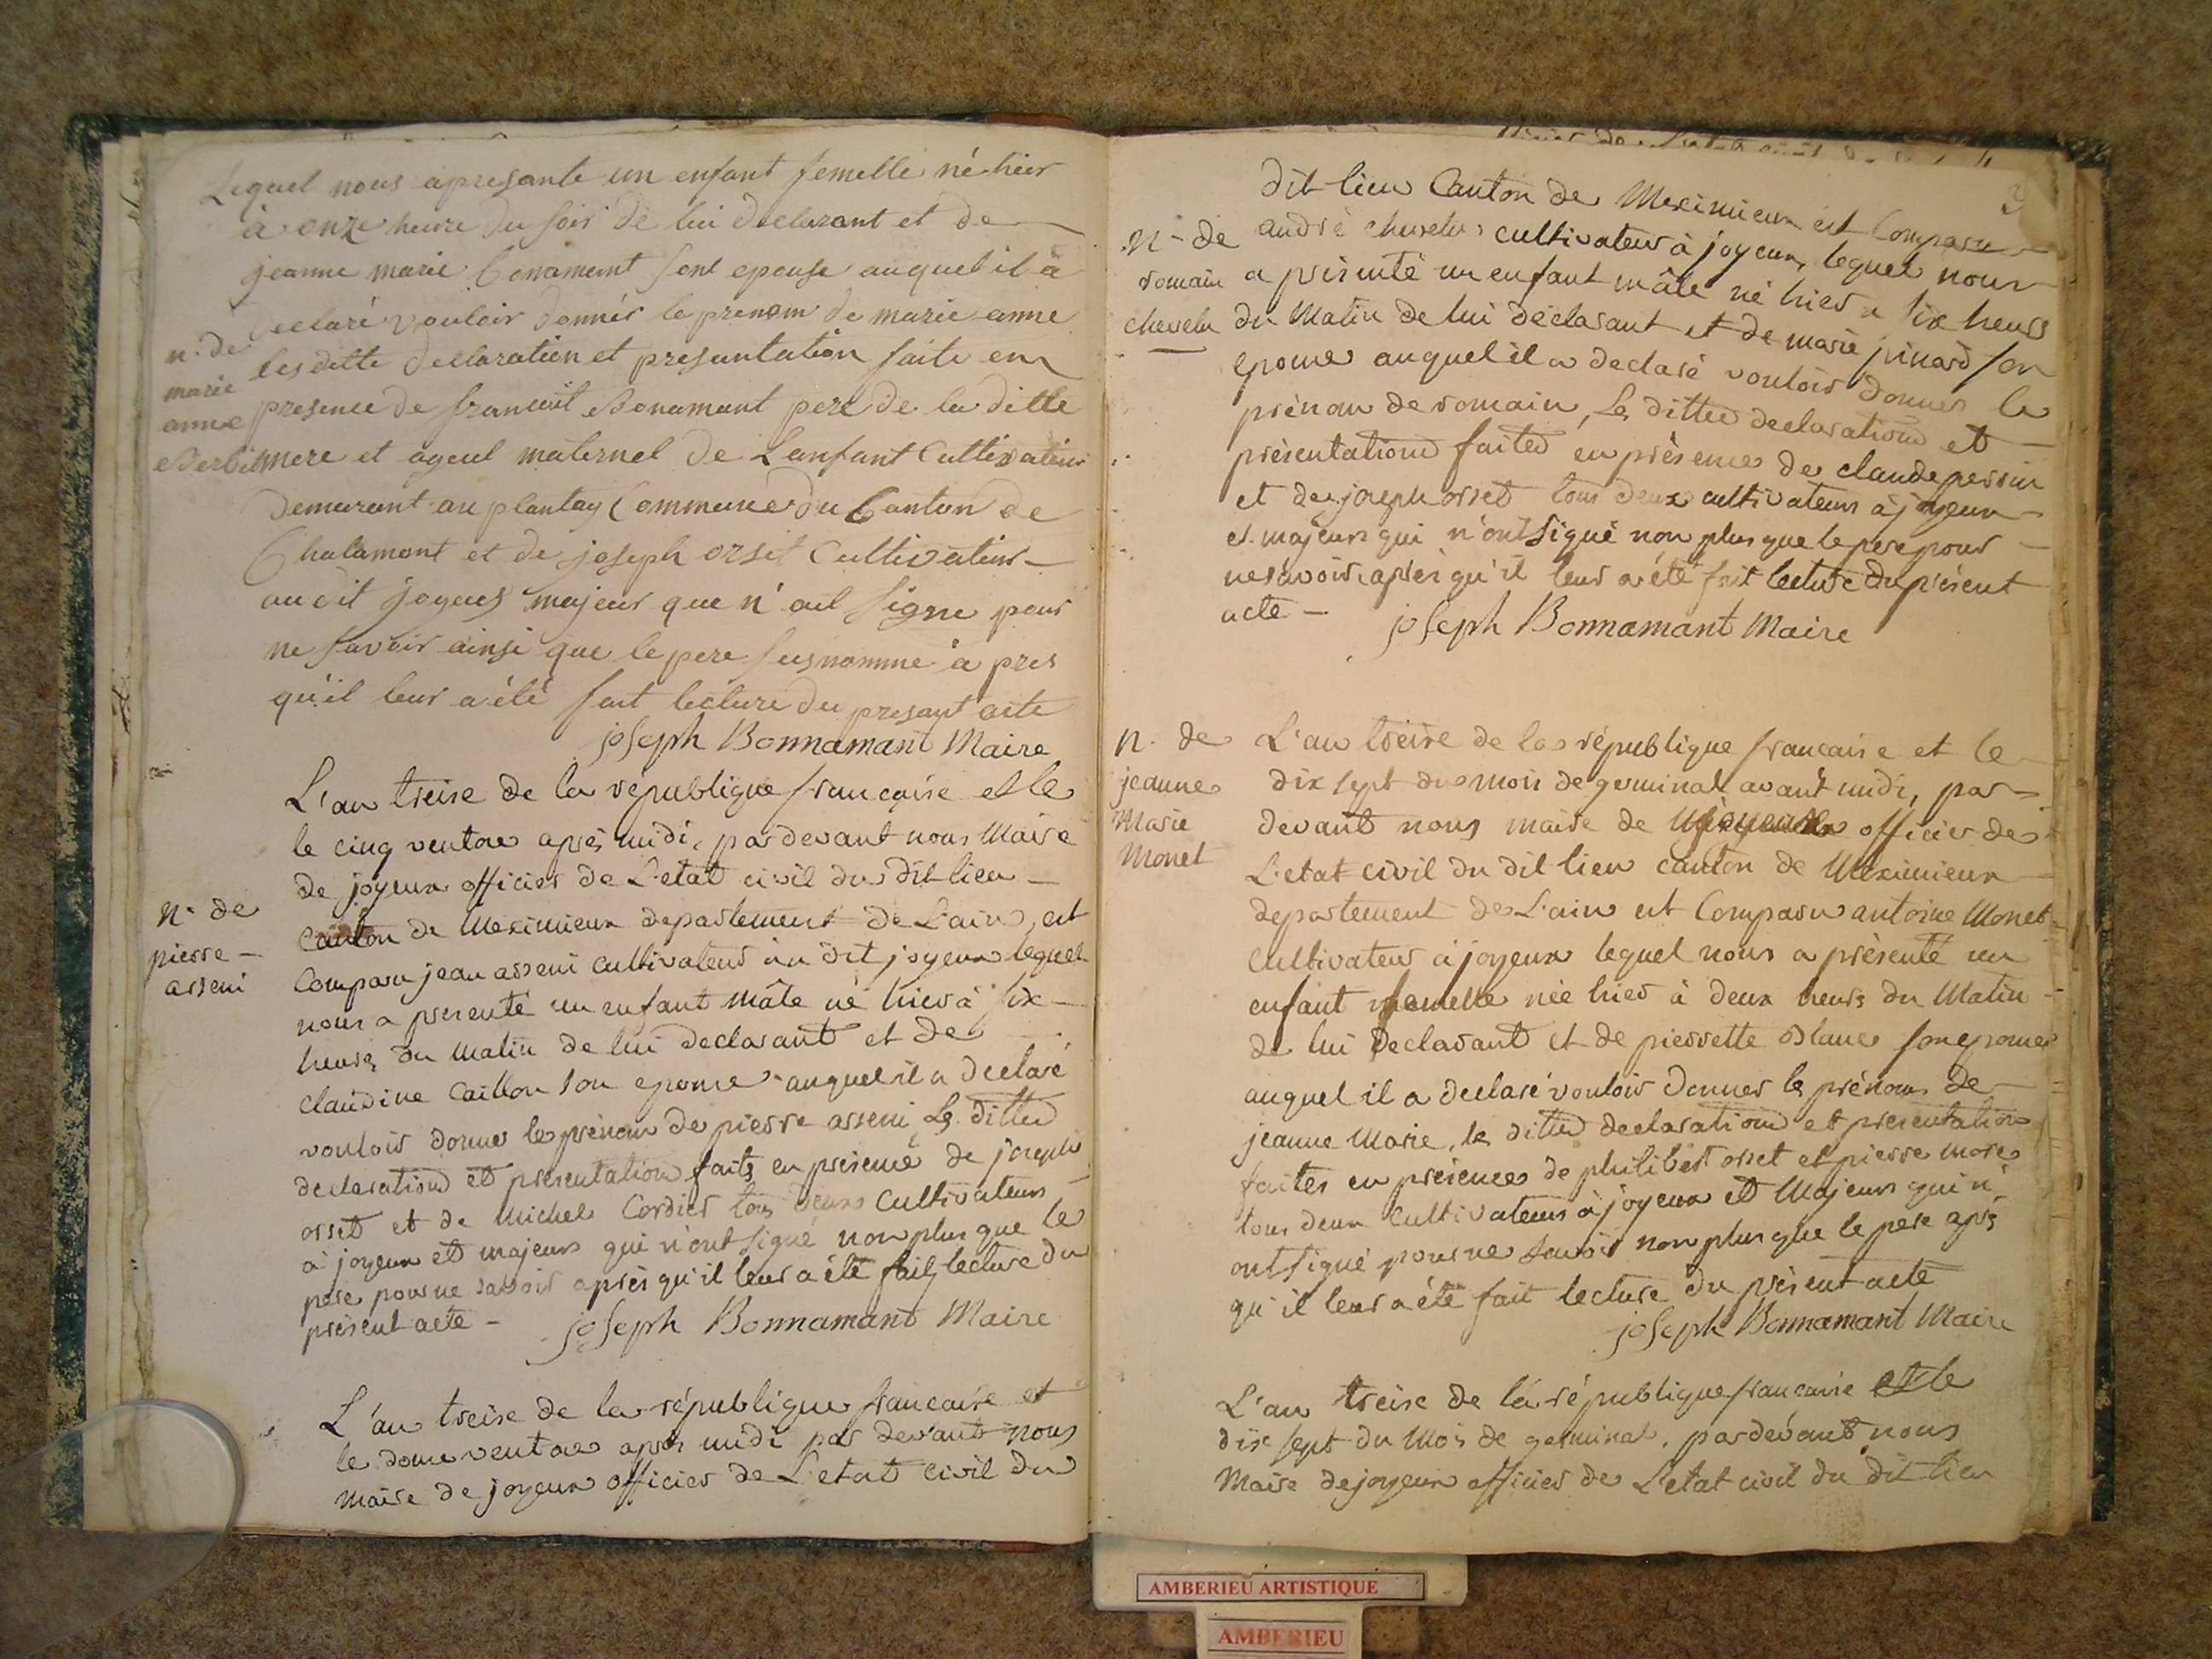 Lequel nous apresante un enfant femelle né hier
à onze heure du soir de lui declarant et de
jeanne marie Bonamant sont epouse auquel il à
declaré vouloir donnér le prenom de marie anne
n. de
marie
anne
les ditte declaration et presantation faite en
presence de francoit Bonamant pere de la ditte
mere et ageul maternel de Lanfant Cultivateur
demurant au plantay Commune du Canton de
Chalamont et de joseph orset Cultivateur
au dit joyeux majeur que n'ont signe pour
ne savoir ainsi que le pere susnomme à pres
qu'il leur a été fait lecture du presant acte
joseph Bonnamant Maire
L'an treise de la république francaise et le
le cinq ventose après midi, pardevant nous Maire
de joyeux officier de L'etat civil du dit lieu
n. de
pierre
arseni
canton de Meximieux departement de L'ain, est
Comparu jean arseni cultivateur au dit joyeux lequel
nous a presenté un enfant mâle né hier à six
heures du matin de lui declarant et de
claudine Caillon son epouse auquel il a declaré
vouloir donner le prénom de pierre arseni Les dittes
declarations et presentations faits en présence de joseph
orset et de Michel Cordier tous deux cultivateurs
à joyeux et majeurs qui n'ont signé non plus que le
pere pour ne savoir après qu'il leur a été fait lecture du
présent acte -
joseph Bonnamant Maire
L'an treise de la république francaise et
le douze ventose après midi par devant nous
maire de joyeux officier de L'etat civil du
3
dit lieu Canton de Meximieux est Comparu
n. de
romain
chevelu
andré chevelu cultivateur à joyeux, lequel nous
a présenté un enfant mâle né hier a six heurs
du Matin de lui déclarant et de marie pinard son
epouse auquel il a declaré vouloir donner le
prénom de romain, Les dittes declarations et
présentations faites en présence de claude perrin
et de joseph orset tous deux cultivateurs à joyeux
et majeurs qui n'ont signé non plus que le pere pour
ne savoir, après qu'il leur a été fait lecture du présent
acte -
joseph Bonnamant Maire
n. de
jeanne
Marie
Monet
L'an treise de la république francaise et le
dix sept du mois de germinal avant midi, par
devant nous maire de joyeux officier de
L'etat civil du dit lieu canton de Meximieux
departement de L'ain est Comparu antoine Monet
cultivateur à joyeux lequel nous a présenté un
enfant femelle née hier à deux heurs du Matin
de lui declarant et de pierrette Blanc son epouse
auquel il a declaré vouloir donner les prénoms de
jeanne Marie, les dittes declarations et presentations
faites en présence de philibert orset et pierre more
tous deux cultivateurs à joyeux et Majeurs qui n'
ont signé pour ne savoir non plus que le pere après
qu'il leur a été fait lecture du présent acte
joseph Bonnamant Maire
L'an treise de la république francaise et le
dix sept du Mois de germinal, pardevant nous
Maire de joyeux officier de L'etat civil du dit lieu
AMBERIEU ARTISTIQUE
AMBERIEU